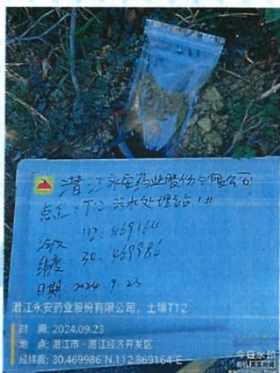 潜江永安药业股份有限公司
点位: T12 污水处理站
112.869164
纬度: 30.469986
日期 2024.9.23
潜江永安药业股份有限公司，土壤T12
时 间: 2024.09.23
地 点: 潜江市·潜江经济开发区
经纬度: 30.469986 N,112.869164 E
今日水印